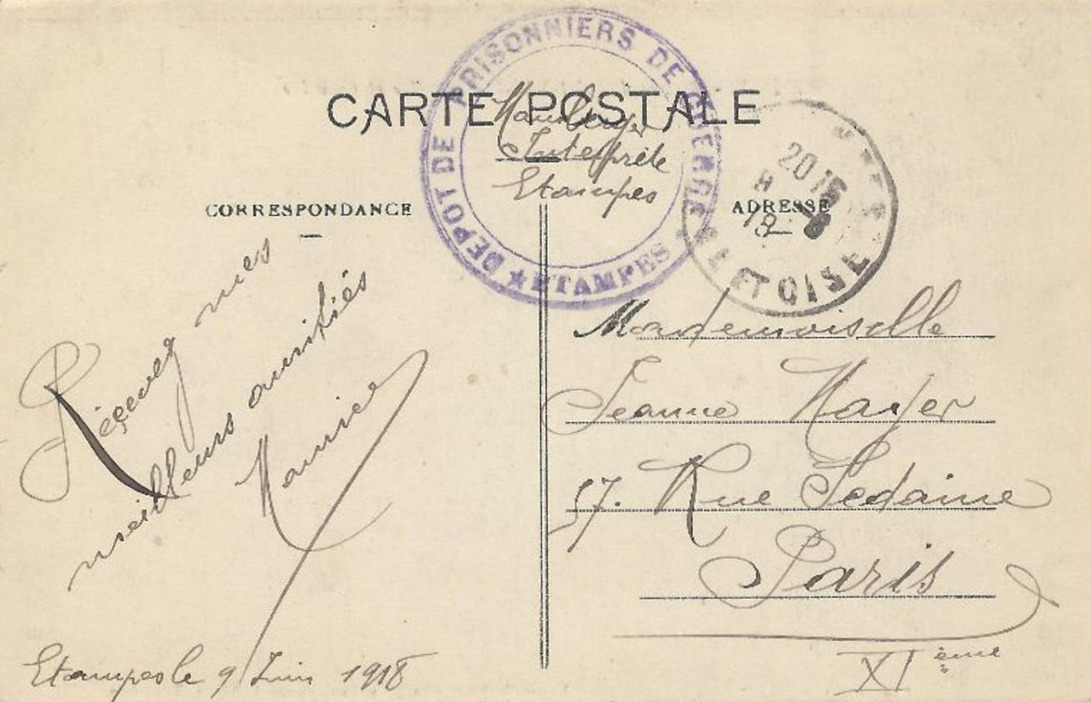 CARTE POSTALE
DEPOT DE PRISONNIERS DE GUERRE
★ ETAMPES
Interprète
Etampes
CORRESPONDANCE
ADRESSE
ET OISE
Recevez mes
meilleurs amitiés
Maurice
Etampes le 9 Juin 1918
Mademoiselle
Jeanne Mayer
57. Rue Sedaine
Paris
XIème